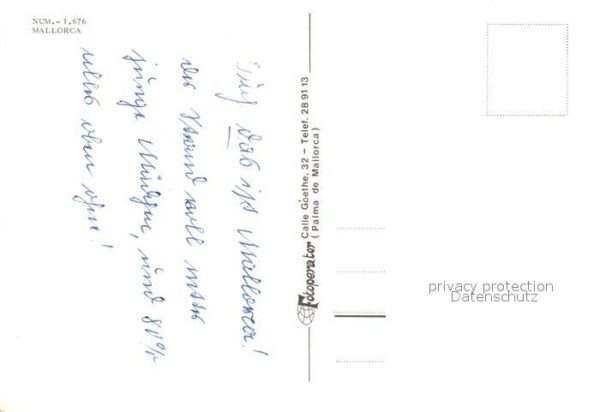 NUM. - 1.676
MALLORCA
Auch das ist Mallorca!
der Strand voll
junge Mädchen, und 80%
alles oben ohne!
Fotoperator Calle Goethe, 32 - Telef. 28 91 13
( Palma de Mallorca )
privacy protection
Datenschutz